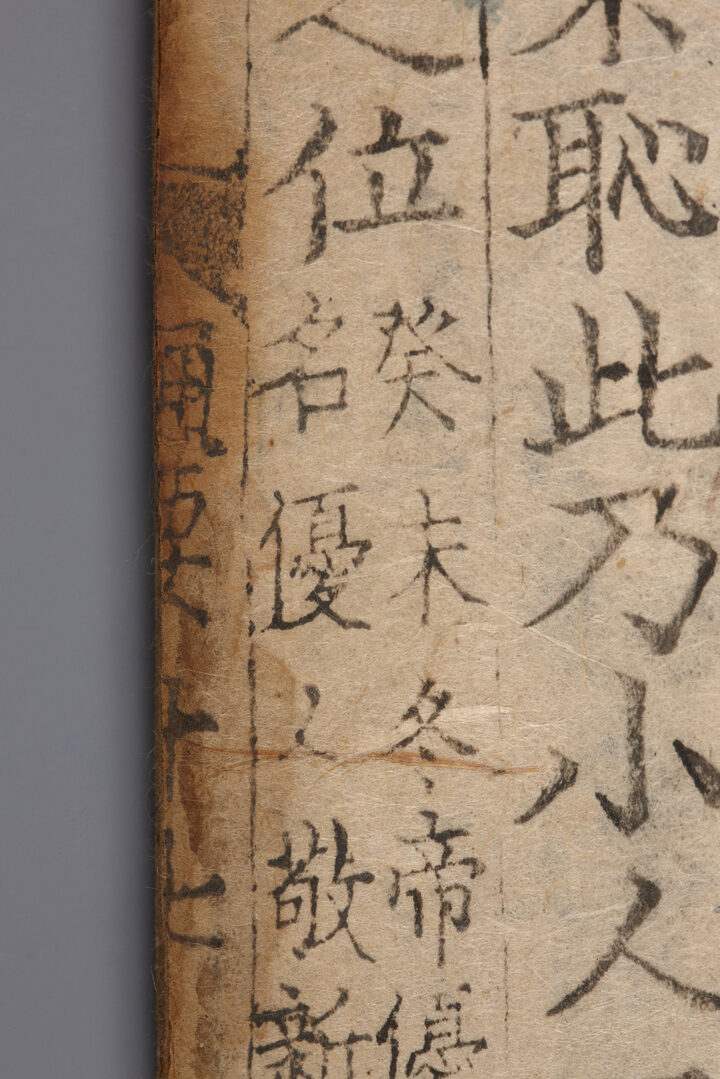 恥此乃小人
之位
癸未冬帝優
名優〻敬新
十七